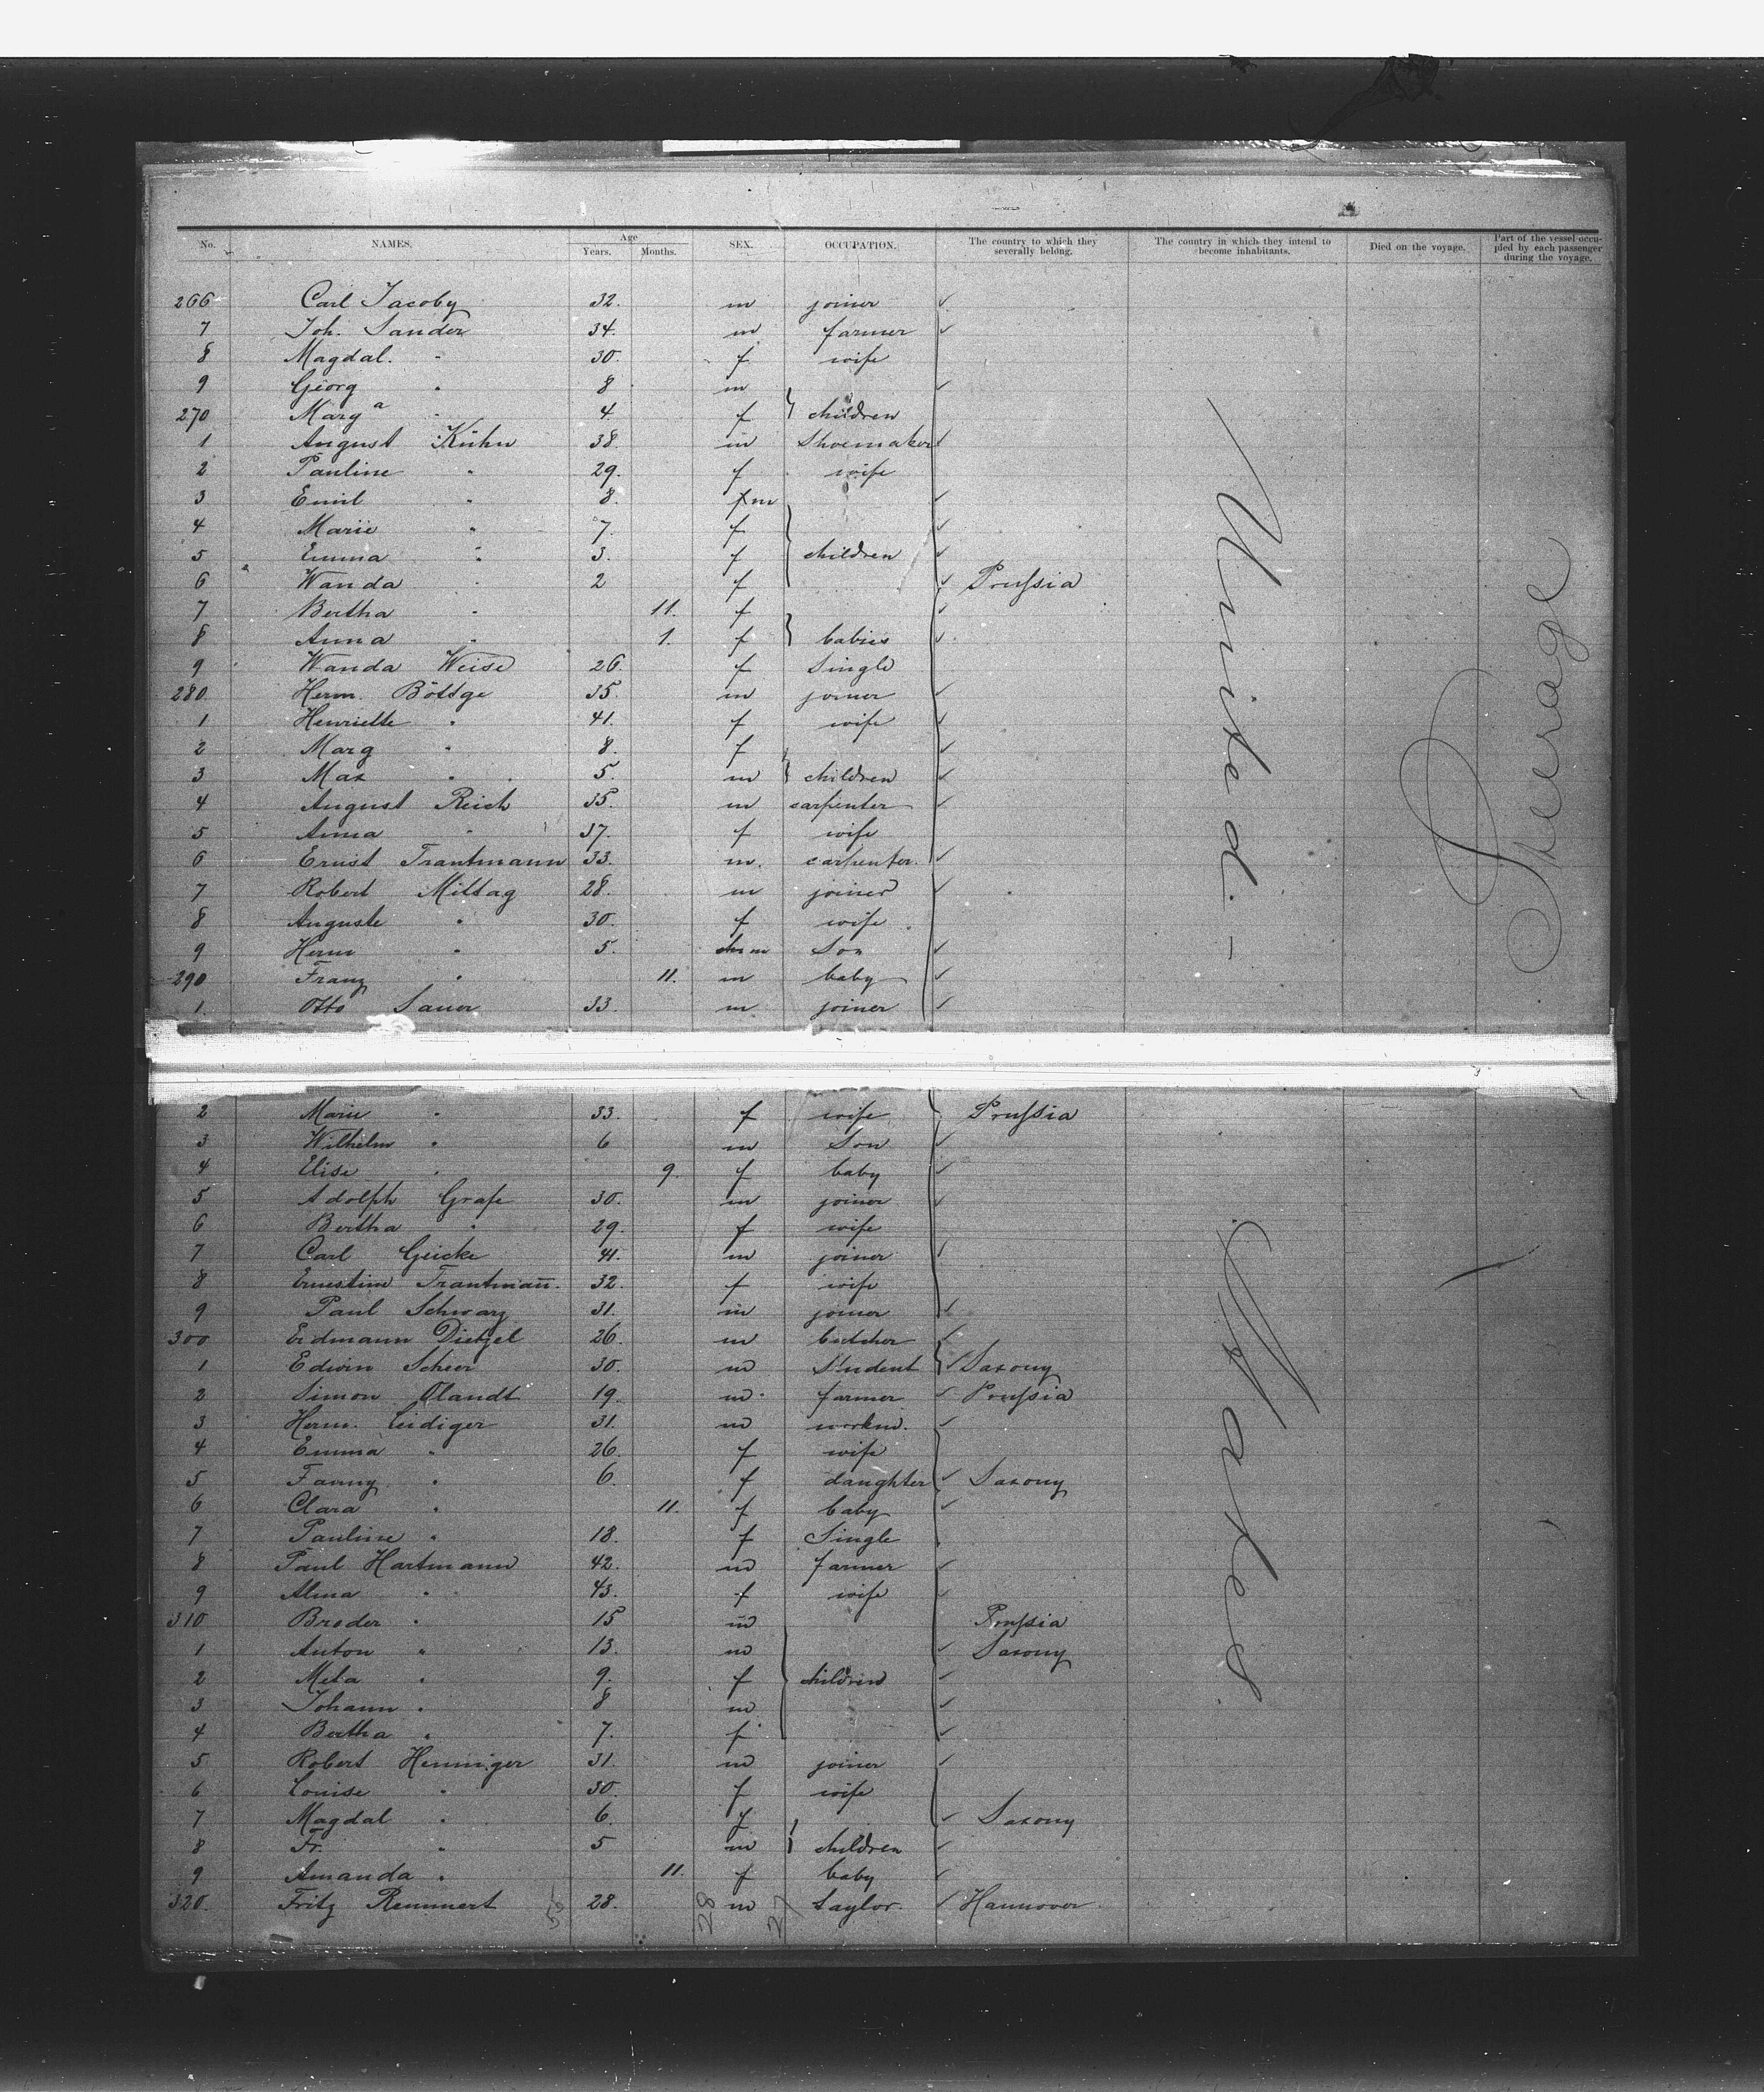 No. NAMES. Age Years. Months. SEX. OCCUPATION. The country to which they severally belong. The country in which they intend to become inhabitants. Died on the voyage. Part of the vessel occupied by each passenger during the voyage.
266 Carl Jacoby 32. m joiner
7 Joh. Sander 34. m farmer
8 Magdal. " 30. f wife
9 Georg " 8 m
270 Marga " 4 f } children
1 August Kühn 38 m Shoemaker
2 Pauline " 29. f wife
3 Emil " 8. f m
4 Marie " 7. f
5 Emma " 3. f children
6 Wanda " 2 f Prussia
7 Bertha " 11. f
8 Anna " 1. f } babies
9 Wanda Weise 26. f Single
280. Herm. Böttge 35. m joiner
1 Henriette " 41. f wife
2 Marg " 8. f
3 Max " 5. m } children
4 August Reich 35. m carpenter
5 Anna " 37. f wife
6 Ernst Trautmann 33. m. carpenter.
7 Robert Mittag 28. m joiner
8 Auguste " 30. f wife
9 Herm " 5. m Son
290 Franz " 11. m baby
1. Otto Sauer 33 m joiner
United.-
Steerage
2 Marie " 33. f wife Prussia
3 Wilhelm " 6 m Son
4 Elise " 9. f baby
5 Adolph Grafe 30. m joiner
6 Bertha " 29. f wife
7 Carl Geicke 41. m joiner
8 Ernestine Trautmañ. 32. f wife
9 Paul Schwarz 31. m joiner
300 Erdmann Dietzel 26. m butcher
1 Edwin Scheer 30. m Student Saxony
2 Simon Olandt 19. m. farmer Prussia
3 Herm. Leidiger 31. m workm.
4 Emma " 26. f wife
5 Fanny " 6. f daughter Saxony
6 Clara " 11. f baby
7 Pauline " 18. f Single
8 Paul Hartmann 42. m farmer
9 Alma " 43. f wife
310 Broder " 15 m Prussia
1 Anton " 13. m Saxony
2 Meta " 9. f children
3 Johann " 8 m
4 Bertha " 7. f
5 Robert Henniger 31. m joiner
6 Louise " 30. f wife
7 Magdal " 6. f Saxony
8 Fr. " 5 m } children
9 Amanda " 11. f baby
320. Fritz Remmert 28. m taylor. Hannover
States
55 28 27